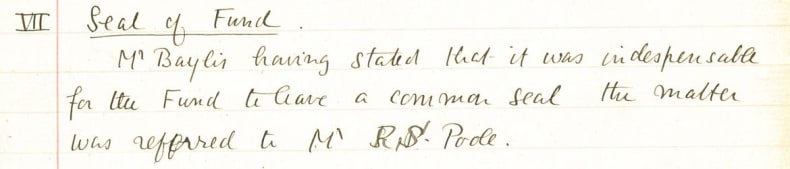 VII Seal of Fund.
Mr Baylis having stated that it was indespensable
for the Fund to have a common seal the matter
was referred to Mr R.S. Poole.